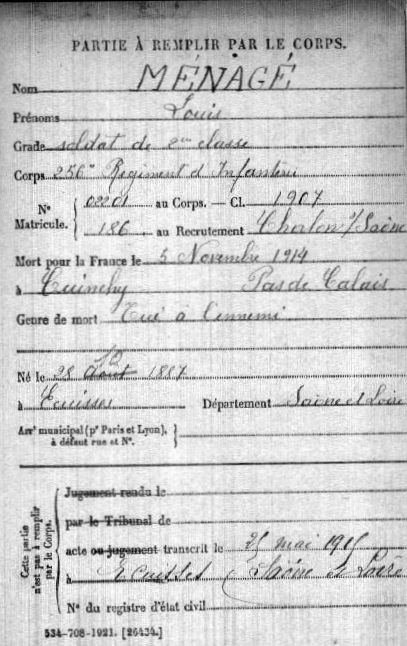 PARTIE À REMPLIR PAR LE CORPS.
Nom MÉNAGÉ
Prénoms Louis
Grade soldat de 2me classe
Corps 256e Régiment d'Infanterie
N° Matricule. { 02201 au Corps. — Cl. 1907
186 au Recrutement Chalon s/Saône
Mort pour la France le 5 Novembre 1914
à Cuinchy Pas de Calais
Genre de mort Tué à l'ennemi
Né le 28 Août 1887
à Département Saône et Loire
Arrt municipal (pr Paris et Lyon), à défaut rue et N°. }
Cette partie n'est pas à remplir par le Corps.
Jugement rendu le
par le Tribunal de
acte ou jugement transcrit le 25 mai 1915
à Ecuisses (Saône et Loire
N° du registre d'état civil
534-708-1921. [26434.]